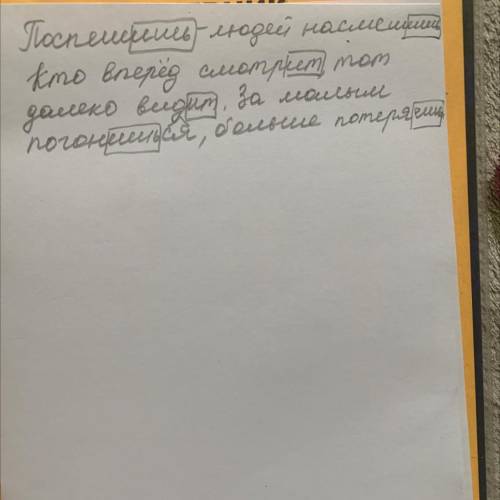 Поспешишь-людей насмешишь
Кто вперёд смотрит, тот
далеко видит. За малым
погонишься, больше потеряешь